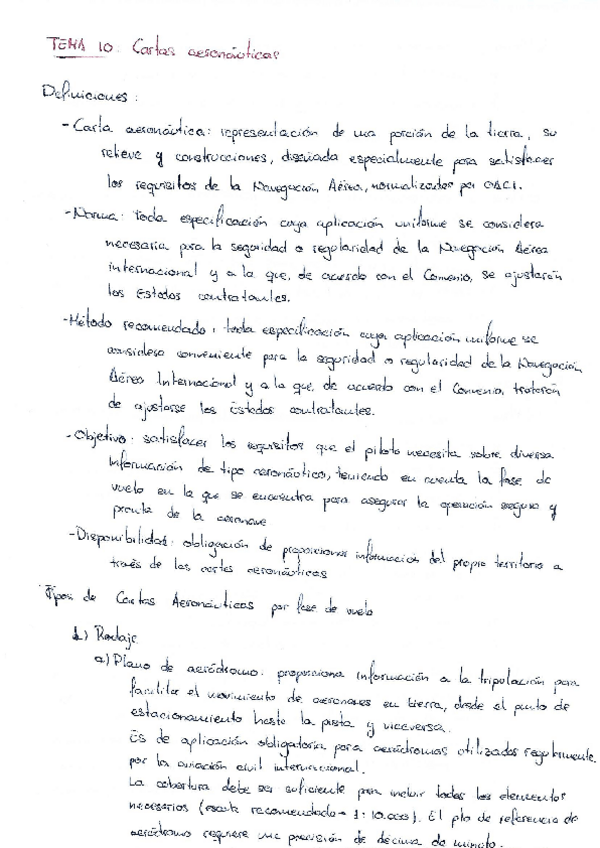 TEMA 10: Cartas aeronáuticas
Definiciones:
- Carta aeronáutica: representación de una porción de la tierra, su
relieve y construcciones, diseñada especialmente para satisfacer
los requisitos de la Navegación Aérea, normalizadas por OACI.
- Norma: toda especificación cuya aplicación uniforme se considera
necesaria para la seguridad o regularidad de la Navegación Aérea
internacional y a la que, de acuerdo con el Convenio, se ajustarán
los Estados contratantes.
- Método recomendado: toda especificación cuya aplicación uniforme se
considera conveniente para la seguridad o regularidad de la Navegación
Aérea Internacional y a la que, de acuerdo con el Convenio, tratarán
de ajustarse los Estados contratantes.
- Objetivo: satisfacer los requisitos que el piloto necesita sobre diversa
información de tipo aeronáutico, teniendo en cuenta la fase de
vuelo en la que se encuentra para asegurar la operación segura y
pronta de la aeronave
- Disponibilidad: obligación de proporcionar información del propio territorio a
través de las cartas aeronáuticas
Tipos de Cartas Aeronáuticas por fase de vuelo
1) Rodaje
a) Plano de aeródromo: proporciona información a la tripulación para
facilitar el movimiento de aeronaves en tierra, desde el punto de
estacionamiento hasta la pista y viceversa.
Es de aplicación obligatoria para aeródromos utilizados regularmente
por la aviación civil internacional.
La cobertura debe ser suficiente para incluir todos los elementos
necesarios (escala recomendada - 1:10.000). El pto de referencia de
aeródromo requiere una precisión de décima de minuto.